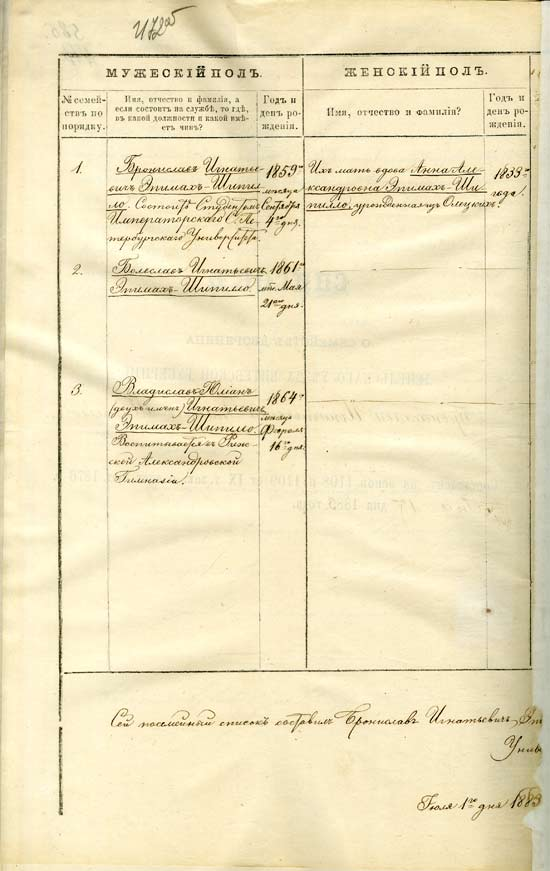 МУЖЕСКІЙ ПОЛЪ.
ЖЕНСКІЙ ПОЛЪ.
№ семей-
ствъ по
порядку.
Имя, отчество и фамилія, а
если состоитъ на службѣ, то гдѣ,
въ какой должности и какой имѣ-
етъ чинъ?
Годъ и
день ро-
жденія.
Имя, отчество и фамилія?
Годъ и
день ро-
жденія.
1.
Брониславъ Игнатье-
вичъ Эпимахъ-Шипил-
ло. Состоитъ Студентомъ
Императорскаго С. Пе-
тербургскаго Университета.
1859 го
мѣсяца
Сентября
4 го дня.
Ихъ мать вдова Анна Але-
ксандровна Эпимахъ-Ши-
пилло, урожденная изъ
1838 го
года.
2.
Болеславъ Игнатьевичъ
Эпимахъ-Шипилло.
1861 го
Мая
21 го дня.
3.
Владиславъ Юліанъ
(двухъ именъ) Игнатьевичъ
Эпимахъ-Шипилло.
Воспитывается въ Риж-
ской Александровской
Гимназіи.
1864 го
мѣсяца
Февраля
16 го дня.
Сей посемейный списокъ составилъ Брониславъ Игнатьевичъ Эп
Унив
Іюля 1 го дня 1883